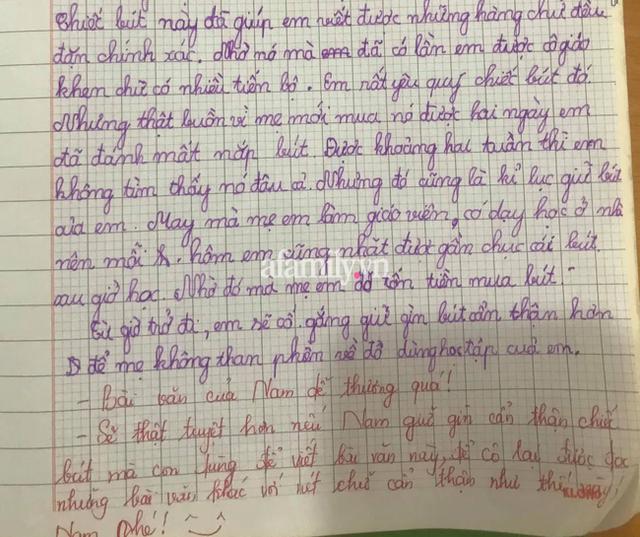 Chiếc bút này đã giúp em viết được những hàng chữ đều
đặn chính xác. Nhờ nó mà đã có lần em được cô giáo
khen chữ có nhiều tiến bộ. Em rất yêu quý chiếc bút đó.
Nhưng thật buồn vì mẹ mới mua nó được hai ngày em
đã đánh mất nắp bút. Được khoảng hai tuần thì em
không tìm thấy nó đâu cả. Nhưng đó cũng là kỉ lục giữ bút
của em. May mà mẹ em làm giáo viên, có dạy học ở nhà
nên mỗi hôm em cũng nhặt được gần chục cái bút
sau giờ học. Nhờ đó mà mẹ em đỡ tốn tiền mua bút.
afamily.vn
Từ giờ trở đi, em sẽ cố gắng giữ gìn bút cẩn thận hơn
để mẹ không than phiền về đồ dùng học tập của em.
- Bài văn của Nam dễ thương quá!
- Sẽ thật tuyệt hơn nếu Nam giữ gìn cẩn thận chiếc
bút mà con dùng để viết bài văn này, để cô lại được đọc
những bài văn khác với nét chữ cẩn thận như thế này,
Nam nhé!